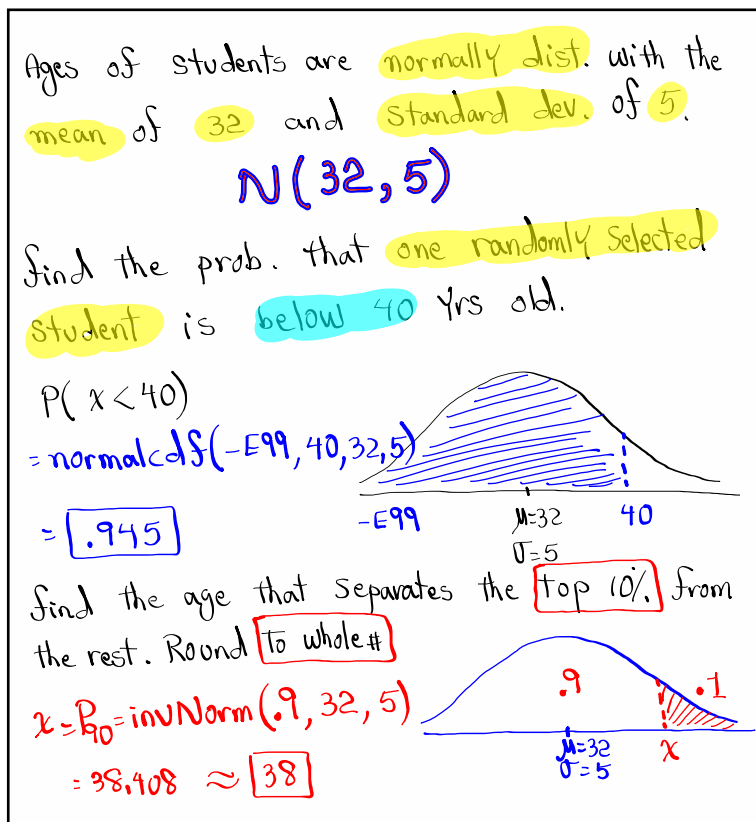 Ages of students are normally dist. with the
mean of 32 and standard dev. of 5.
N(32,5)
find the prob. that one randomly selected
student is below 40 yrs old.
P( x < 40)
= normalcdf(-E99, 40, 32, 5)
= .945
-E99 μ=32 40
σ=5
find the age that separates the top 10% from
the rest. Round to whole #
x = P90 = invNorm(.9, 32, 5)
= 38.408 ≈ 38
.9 .1
μ=32 x
σ=5